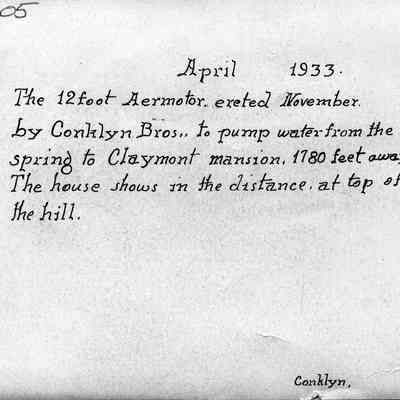 05
April 1933.
The 12 foot Aermotor. ereted November.
by Conklyn Bros., to pump water from the
spring to Claymont mansion, 1780 feet away
The house shows in the distance, at top of
the hill.
Conklyn,